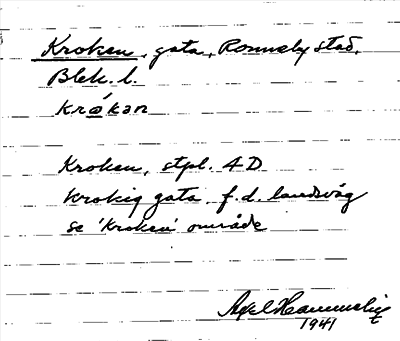 Kroken, gata, Ronneby stad,
Blek. l.
krókən
Kroken, stpl. 4D
krokig gata f.d. landsväg
se 'Kroken' område
Axel Hammelig
1941